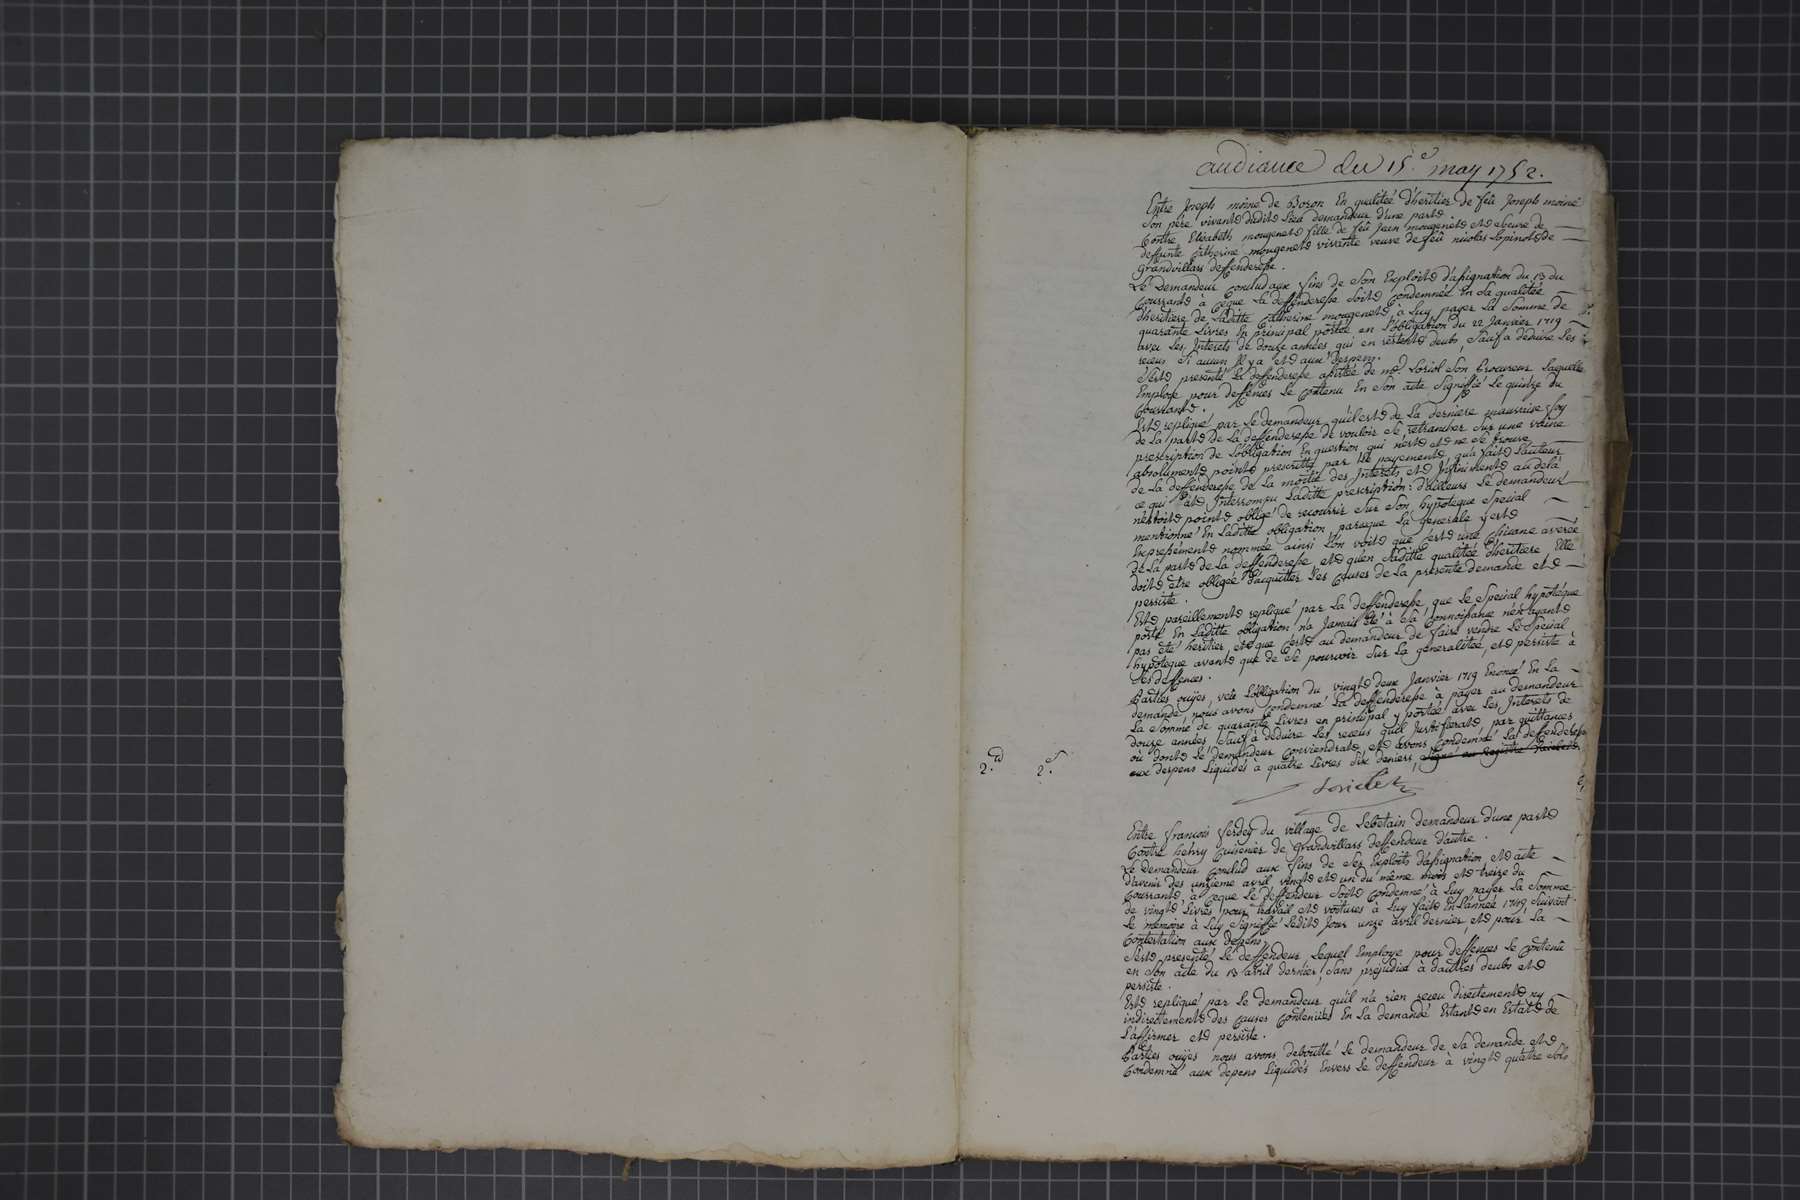 audiance du 15.e may 1752.
Entre Joseph moine de Boron En qualiteé d'heritier de feü Joseph moine
Son pére vivant dudit Lieu demandeur d'une part
Contre Elisabeth mougenet fille de feü Jean mougenet et Soeure de
deffunte Catherine mougenet vivante veuve de feü nicolas Lpinot de
Grandvillars deffenderesse.
Le Demandeur Conclud aux fins de Son Exploit d'assignation du 13 du
Courrant à Ceque La deffenderesse Soit Condemneé En Sa qualiteé
d'heritiere de Laditte Catherine mougenet à Luy payer La Somme de
quarante Livres En principal porteé en L'obligation du 22 Janvier 1719
avec Les Interets de douze années qui en restent deubs, Sauf à deduire Les
receus Si aucun Il y a et aux Despens.
S'est presenté La deffenderesse assistée de me. Loriol Son Procureur Laquelle
Employe pour deffences Le Contenu En Son acte Signeffié Le quinze du
Courrant.
Est repliqué par Le demandeur quil est de La derniere mauvaise foy
de La part de La deffenderesse de vouloir Se retrancher Sur une vaine
prescription de L'obligation En question qui n'est et ne Se trouve
absolument point prescritte par Le payement qu'a fait L'auteur
de La deffenderesse de La moitié des Interets et Infiniment au delà
ce qui at Interrompu Laditte prescription: d'ailleurs Le demandeur
n'etoit point obligé de recourrir Sur Son hypoteque Special
mentionné En Laditte obligation, parceque La generale y est
Expressément nommée ainsi L'on voit que c'est une Chicane avereé
de La part de La deffenderesse, et qu'en Saditte qualiteé d'heritiere Elle
doit etre obligeé d'acquitter Les Causes de La presente demande et
persiste.
Est pareillement repliqué par La deffenderesse, que Le Special hypotéque
porté En Laditte obligation n'a Jamais été à Sa Connoissance n'en ayant
pas eté heritier, et que c'est au demandeur de faire vendre Le Special
hypoteque avant que de Se pourvoir Sur La generaliteé, et persiste à
Ses deffences.
Parties ouijes, veüe L'obligation du vingt deux Janvier 1719 Enoncé En La
demande, nous avons Condemné La deffenderesse à payer au demandeur
La Somme de quarante Livres en principal y porteé avec Les Interets de
douze années Sauf à deduire Les receus quil Justifierat par quittances
ou dont Le demandeur Conviendrat, et avons Condemné La deffenderesse
aux despens Liquidés à quatre Livres Six deniers,
2.d 2.s
Entre francois ferdey du village de Lebetain demandeur d'une part
Contre henry Cuisenier de Grandvillars deffendeur d'autre.
Le demandeur Conclud aux fins de Ses Exploits d'assignation, et acte
d'avenir des unzieme avril vingt et un du même mois et treize du
Courrant, à Ceque Le deffendeur Soit Condemné à Luy payer La Somme
de vingt Livres pour travail et voitures à Luy fait En L'année 1749 Suivant
Le memoire à Luy Signeffié Ledit Jour unze avril dernier, et pour La
Contestation aux depens.
S'est presenté Le deffendeur Lequel Employe pour deffences Le Contenu
en Son acte du 13 avril dernier, Sans prejudice à d'autres deubs et
persiste.
Est repliqué par Le demandeur qu'il n'a rien receu directement ny
indirectement des Causes Contenües En La demande Estant en Estat de
L'affirmer et persiste.
Parties ouijes nous avons deboutté Le demandeur de Sa demande et
Condemné aux depens Liquidés Envers Le deffendeur à vingt quatre Sols